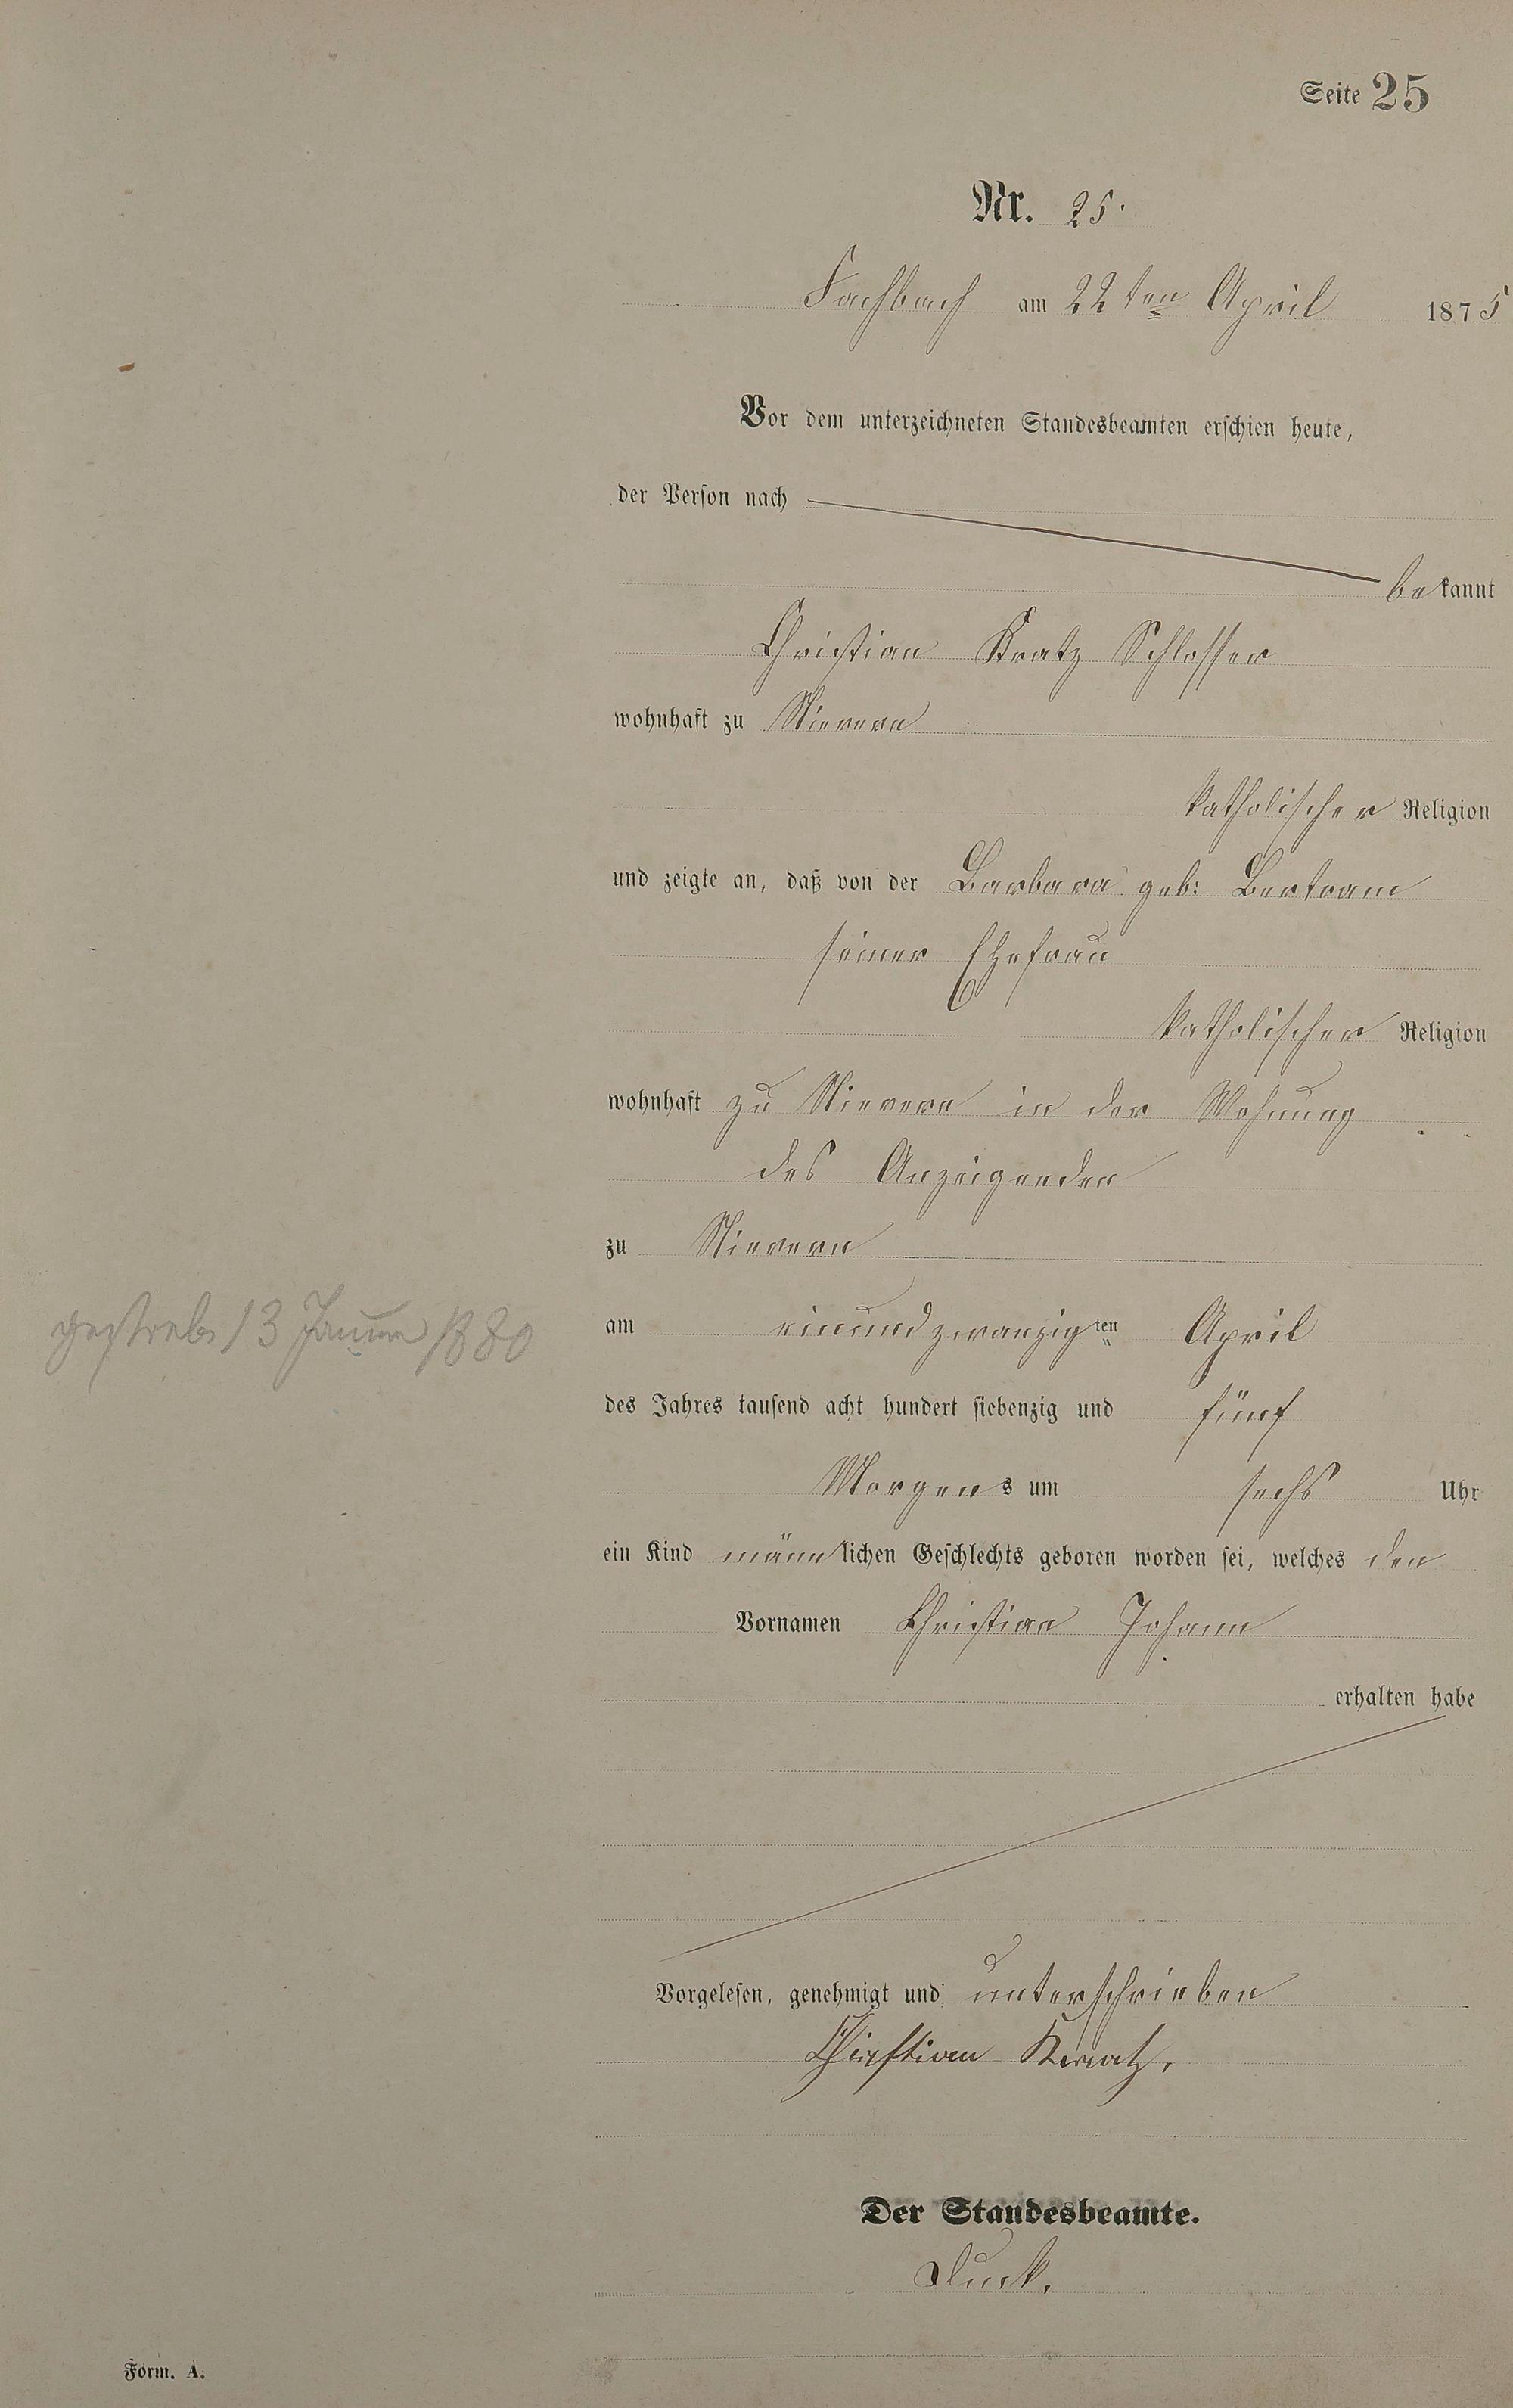 Seite 25
Nr. 25.
Fachbach am 22ten April 1875
Vor dem unterzeichneten Standesbeamten erschien heute,
der Person nach
bekannt
Christian Kratz Schlosser
wohnhaft zu Nievern
katholischer Religion
und zeigte an, daß von der Barbara geb: Bertram
seiner Ehefrau
katholischer Religion
wohnhaft zu Nievern in der Wohnung
des Anzeigenden
zu Nievern
gestorben 13 Januar 1880
am einundzwanzigten April
des Jahres tausend acht hundert siebenzig und fünf
Morgens um sechs Uhr
ein Kind männlichen Geschlechts geboren worden sei, welches den
Vornamen Christian Johann
erhalten habe
Vorgelesen, genehmigt und unterschrieben
Christian Kratz.
Der Standesbeamte.
Form. A.